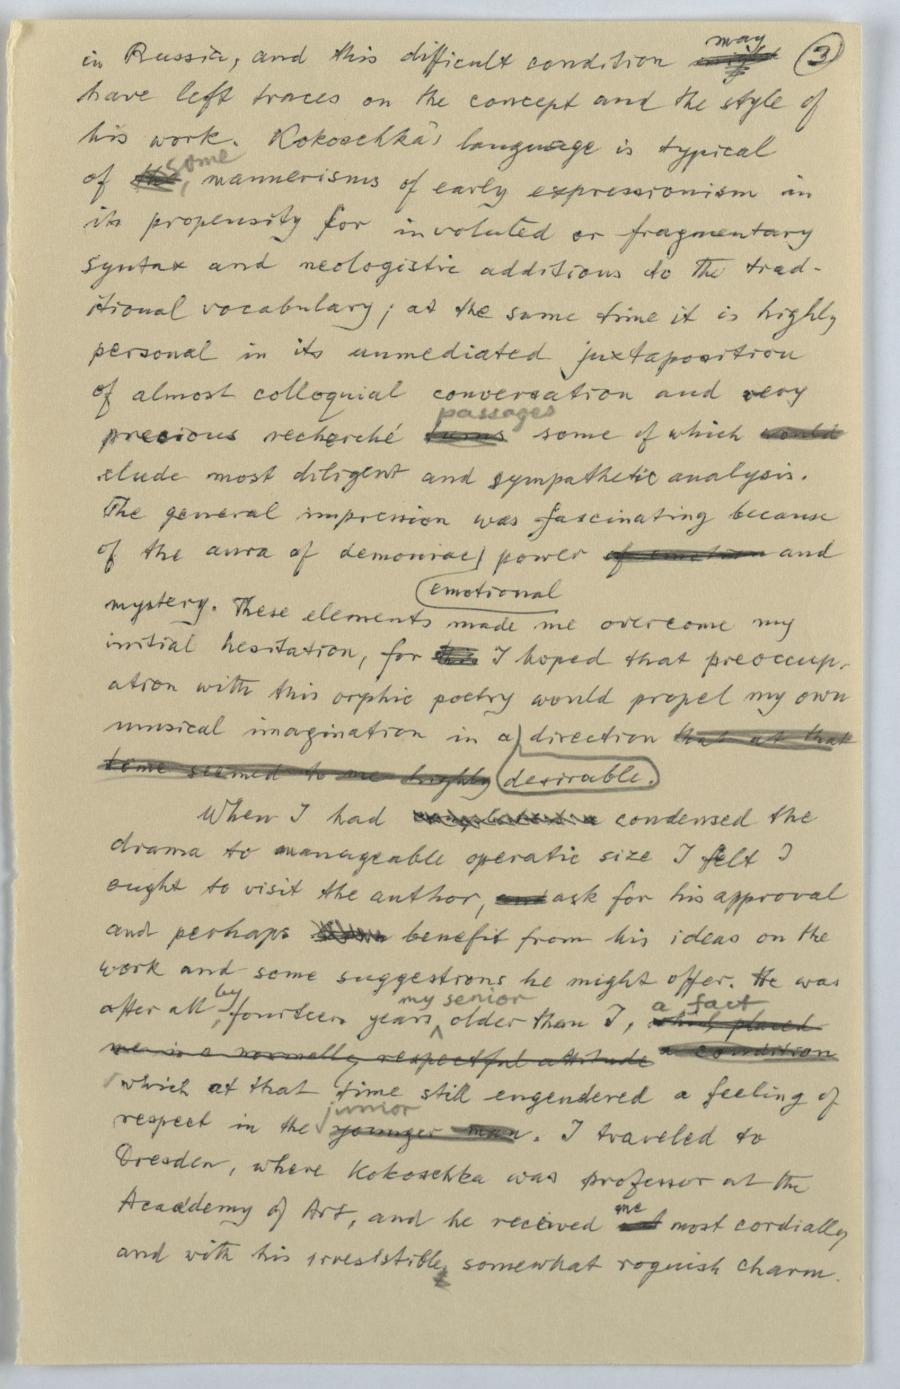 may 3
in Russia, and this difficult condition might
have left traces on the concept and the style of
his work. Kokoschka's language is typical
some
of the, mannerisms of early expressionism in
its propensity for involuted or fragmentary
syntax and neologistic additions to the trad-
itional vocabulary; at the same time it is highly
personal in its unmediated juxtaposition
of almost colloquial conversation and very
passages
precious recherché turns some of which would
elude most diligent and sympathetic analysis.
The general impression was fascinating because
of the aura of demoniac power of emotion and
emotional
mystery. These elements made me overcome my
initial hesitation, for I hoped that preoccup-
ation with this orphic poetry would propel my own
musical imagination in a direction that at that
time seemed to me highly desirable.
When I had condensed the
drama to manageable operatic size I felt I
ought to visit the author, and ask for his approval
and perhaps benefit from his ideas on the
work and some suggestions he might offer. He was
by my senior a fact
after all, fourteen years older than I, which placed
me in a normally respectful attitude a condition
which at that time still engendered a feeling of
junior
respect in the younger man. I traveled to
Dresden, where Kokoschka was professor at the
me
Academy of Art, and he received most cordially
and with his irresistible, somewhat roguish charm.